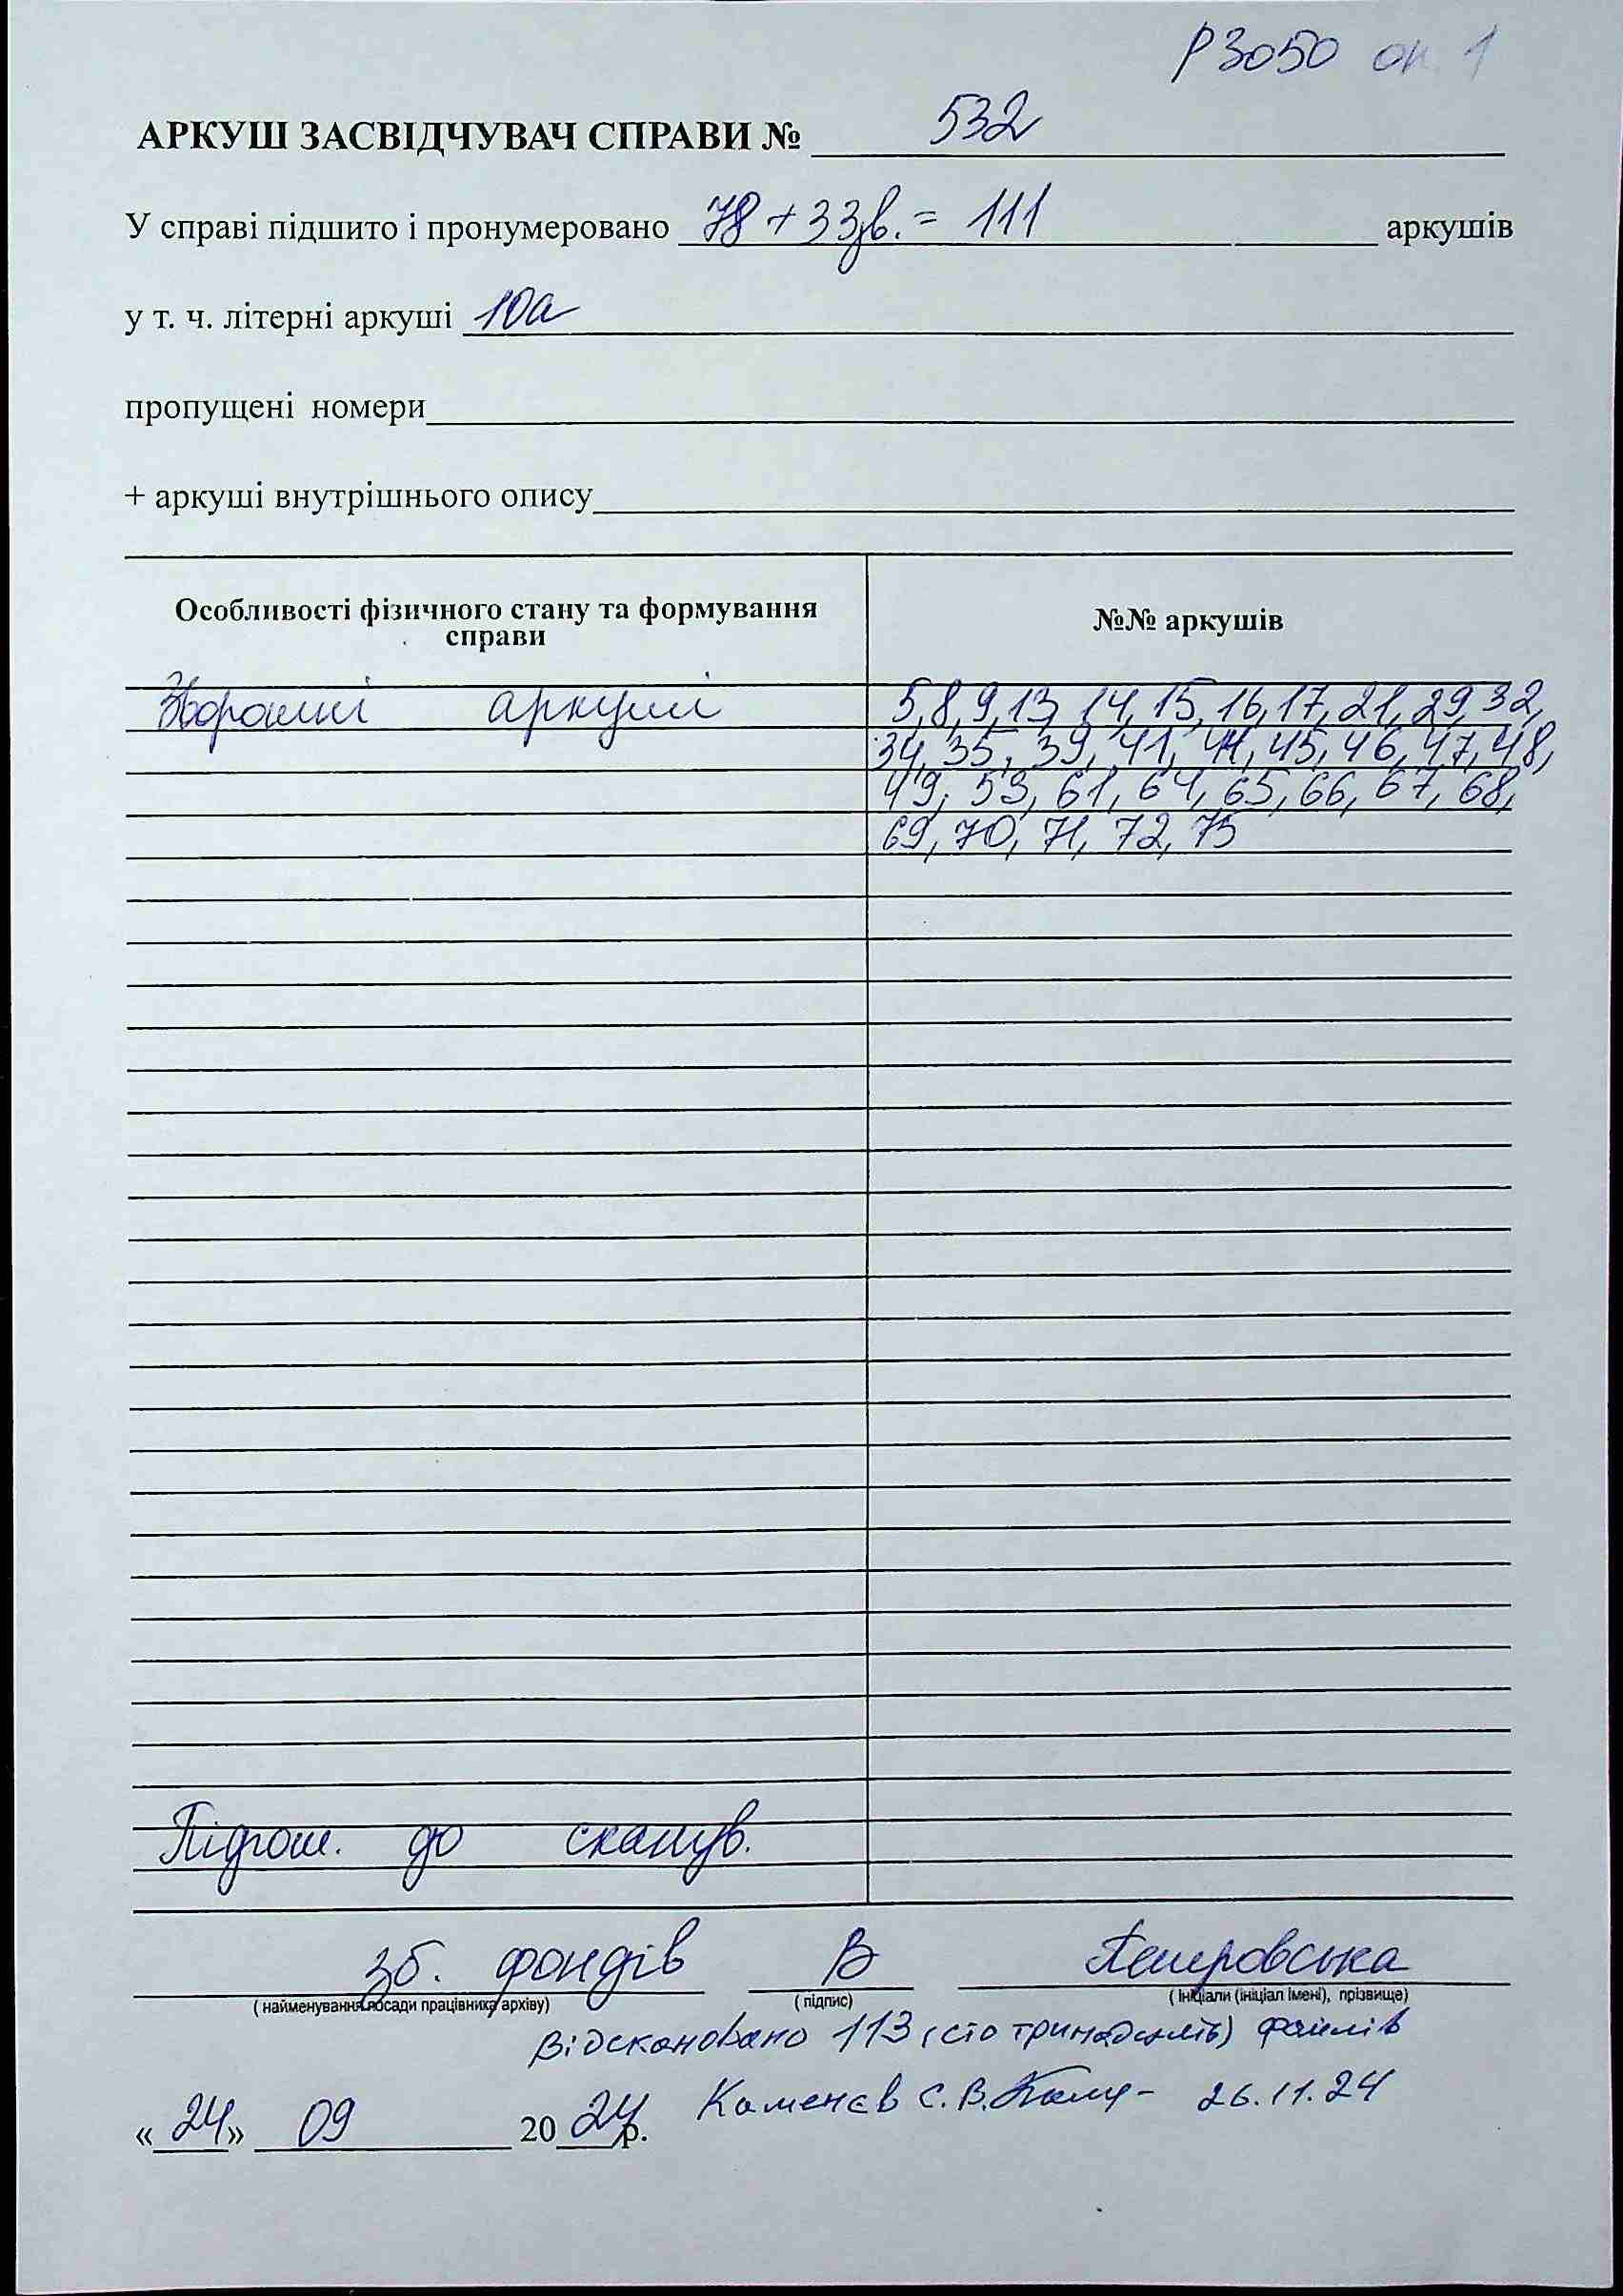 Р3050 оп. 1
АРКУШ ЗАСВІДЧУВАЧ СПРАВИ № 532
У справі підшито і пронумеровано 78 + 33зв. = 111 аркушів
у т. ч. літерні аркуші 10а
пропущені номери
+ аркуші внутрішнього опису
Особливості фізичного стану та формування
справи
№№ аркушів
Зворотні аркуші
5, 8, 9, 13, 14, 15, 16, 17, 21, 29, 32,
34, 35, 39, 41, 44, 45, 46, 47, 48,
49, 53, 61, 64, 65, 66, 67, 68,
69, 70, 71, 72, 75
Підгот. до сканув.
зб. фондів В
( найменування посади працівника архіву) ( підпис) ( ініціали (ініціал імені), прізвище)
Відскановано 113 (сто тринадцять) файлів
Каменєв С.В. 26.11.24
«24» 09 2024 р.